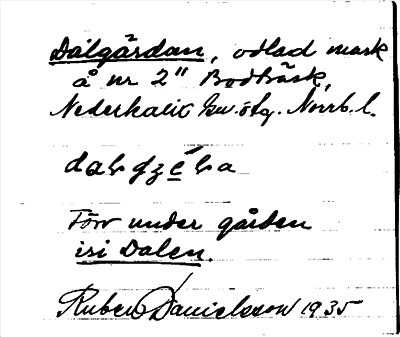 Dalgärdan, odlad mark
å nr 2" Bodträsk,
Nederkalix sn. ötg. Norrb. l.
Förr under gården
isi Dalen.
Ruben Danielsson 1935